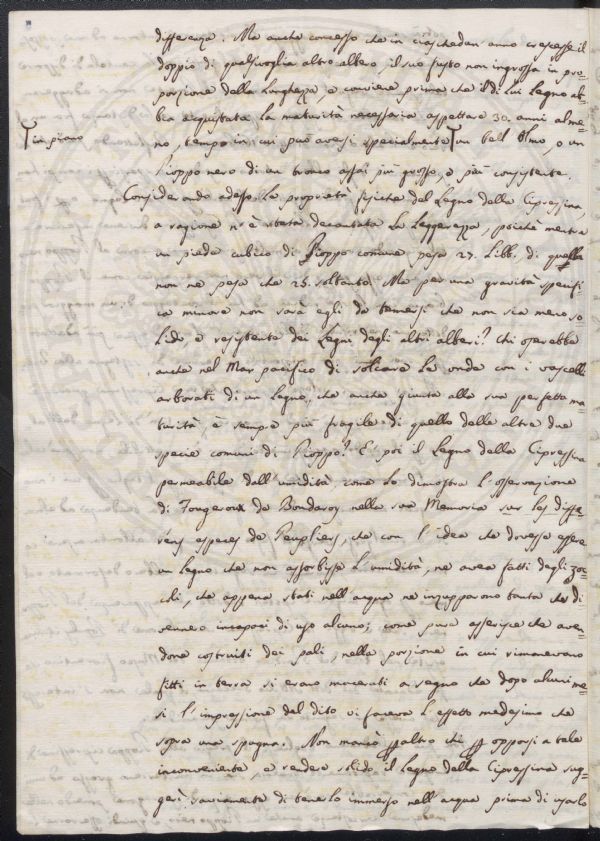 differenza. Ma anche concesso che in ciaschedun anno crescesse il
doppio di qualsivoglia altro albero, il suo fusto non ingrossa in pro-
porzione della lunghezza, e conviene prima che il di lui legno ab-
bia acquistata la maturità necessaria aspettare 30. anni alme-
no, tempo in cui può aversi specialmente un bell'Olmo, o un
in piano
Pioppo nero di un tronco assai più grosso, e più consistente.
Considerando adesso le proprietà fisiche del Legno della Cipressina,
a ragione n'è stata decantata la leggerezza, poichè mentre
un piede cubico di Pioppo comune pesa 27. Libb. di quella
non ne pesa che 25. soltanto. Ma per una gravità specifi-
ca minore non sarà egli da temersi che non sia meno so-
lido, e resistente dei Legni degli altri alberi? Chi oserebbe
anche nel Mar pacifico di solcare le onde con i vascelli
arborati di un Legno, che anche giunto alla sua perfetta ma-
turità, è sempre più fragile di quello delle altre due
specie comuni di Pioppo? E' poi il Legno della Cipressina
permeabile dall'umidità, come lo dimostra l'osservazione
di Fougeroux de Bondaroy nella sua Memoria sur les diffe-
rens especes de Peupliers, che con l'idea che dovesse essere
un Legno che non assorbisse l'umidità, ne avea fatti degli zoc-
coli, che appena stati nell'acqua ne inzupparono tanta che di-
vennero incapaci di uso alcuno; come pure asserisce che aven-
done costruiti dei pali, nella porzione in cui rimanevano
fitti in terra si erano macerati a segno che dopo alcuni me-
si l'impressione del dito vi faceva l'effetto medesimo che
sopra una spugna. Non mancò altro chi opporsi a tale
inconveniente, e rendere solido il Legno della Cipressina sug-
gerì saviamente di tenerlo immerso nell'acqua prima di usarlo